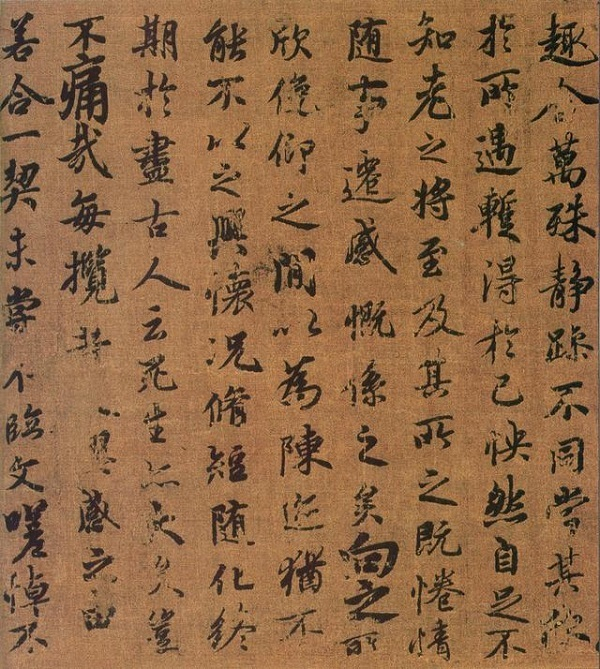 趣舍萬殊静躁不同當其欣
於所遇暫得於己怏然自足不
知老之將至及其所之既惓情
随事遷感慨係之矣向之所
欣俛仰之閒以為陳迹猶不
能不以之興懷况脩短随化終
期於盡古人云死生亦大矣豈
不痛哉每攬昔人興感之由
若合一契未嘗不臨文嗟悼不